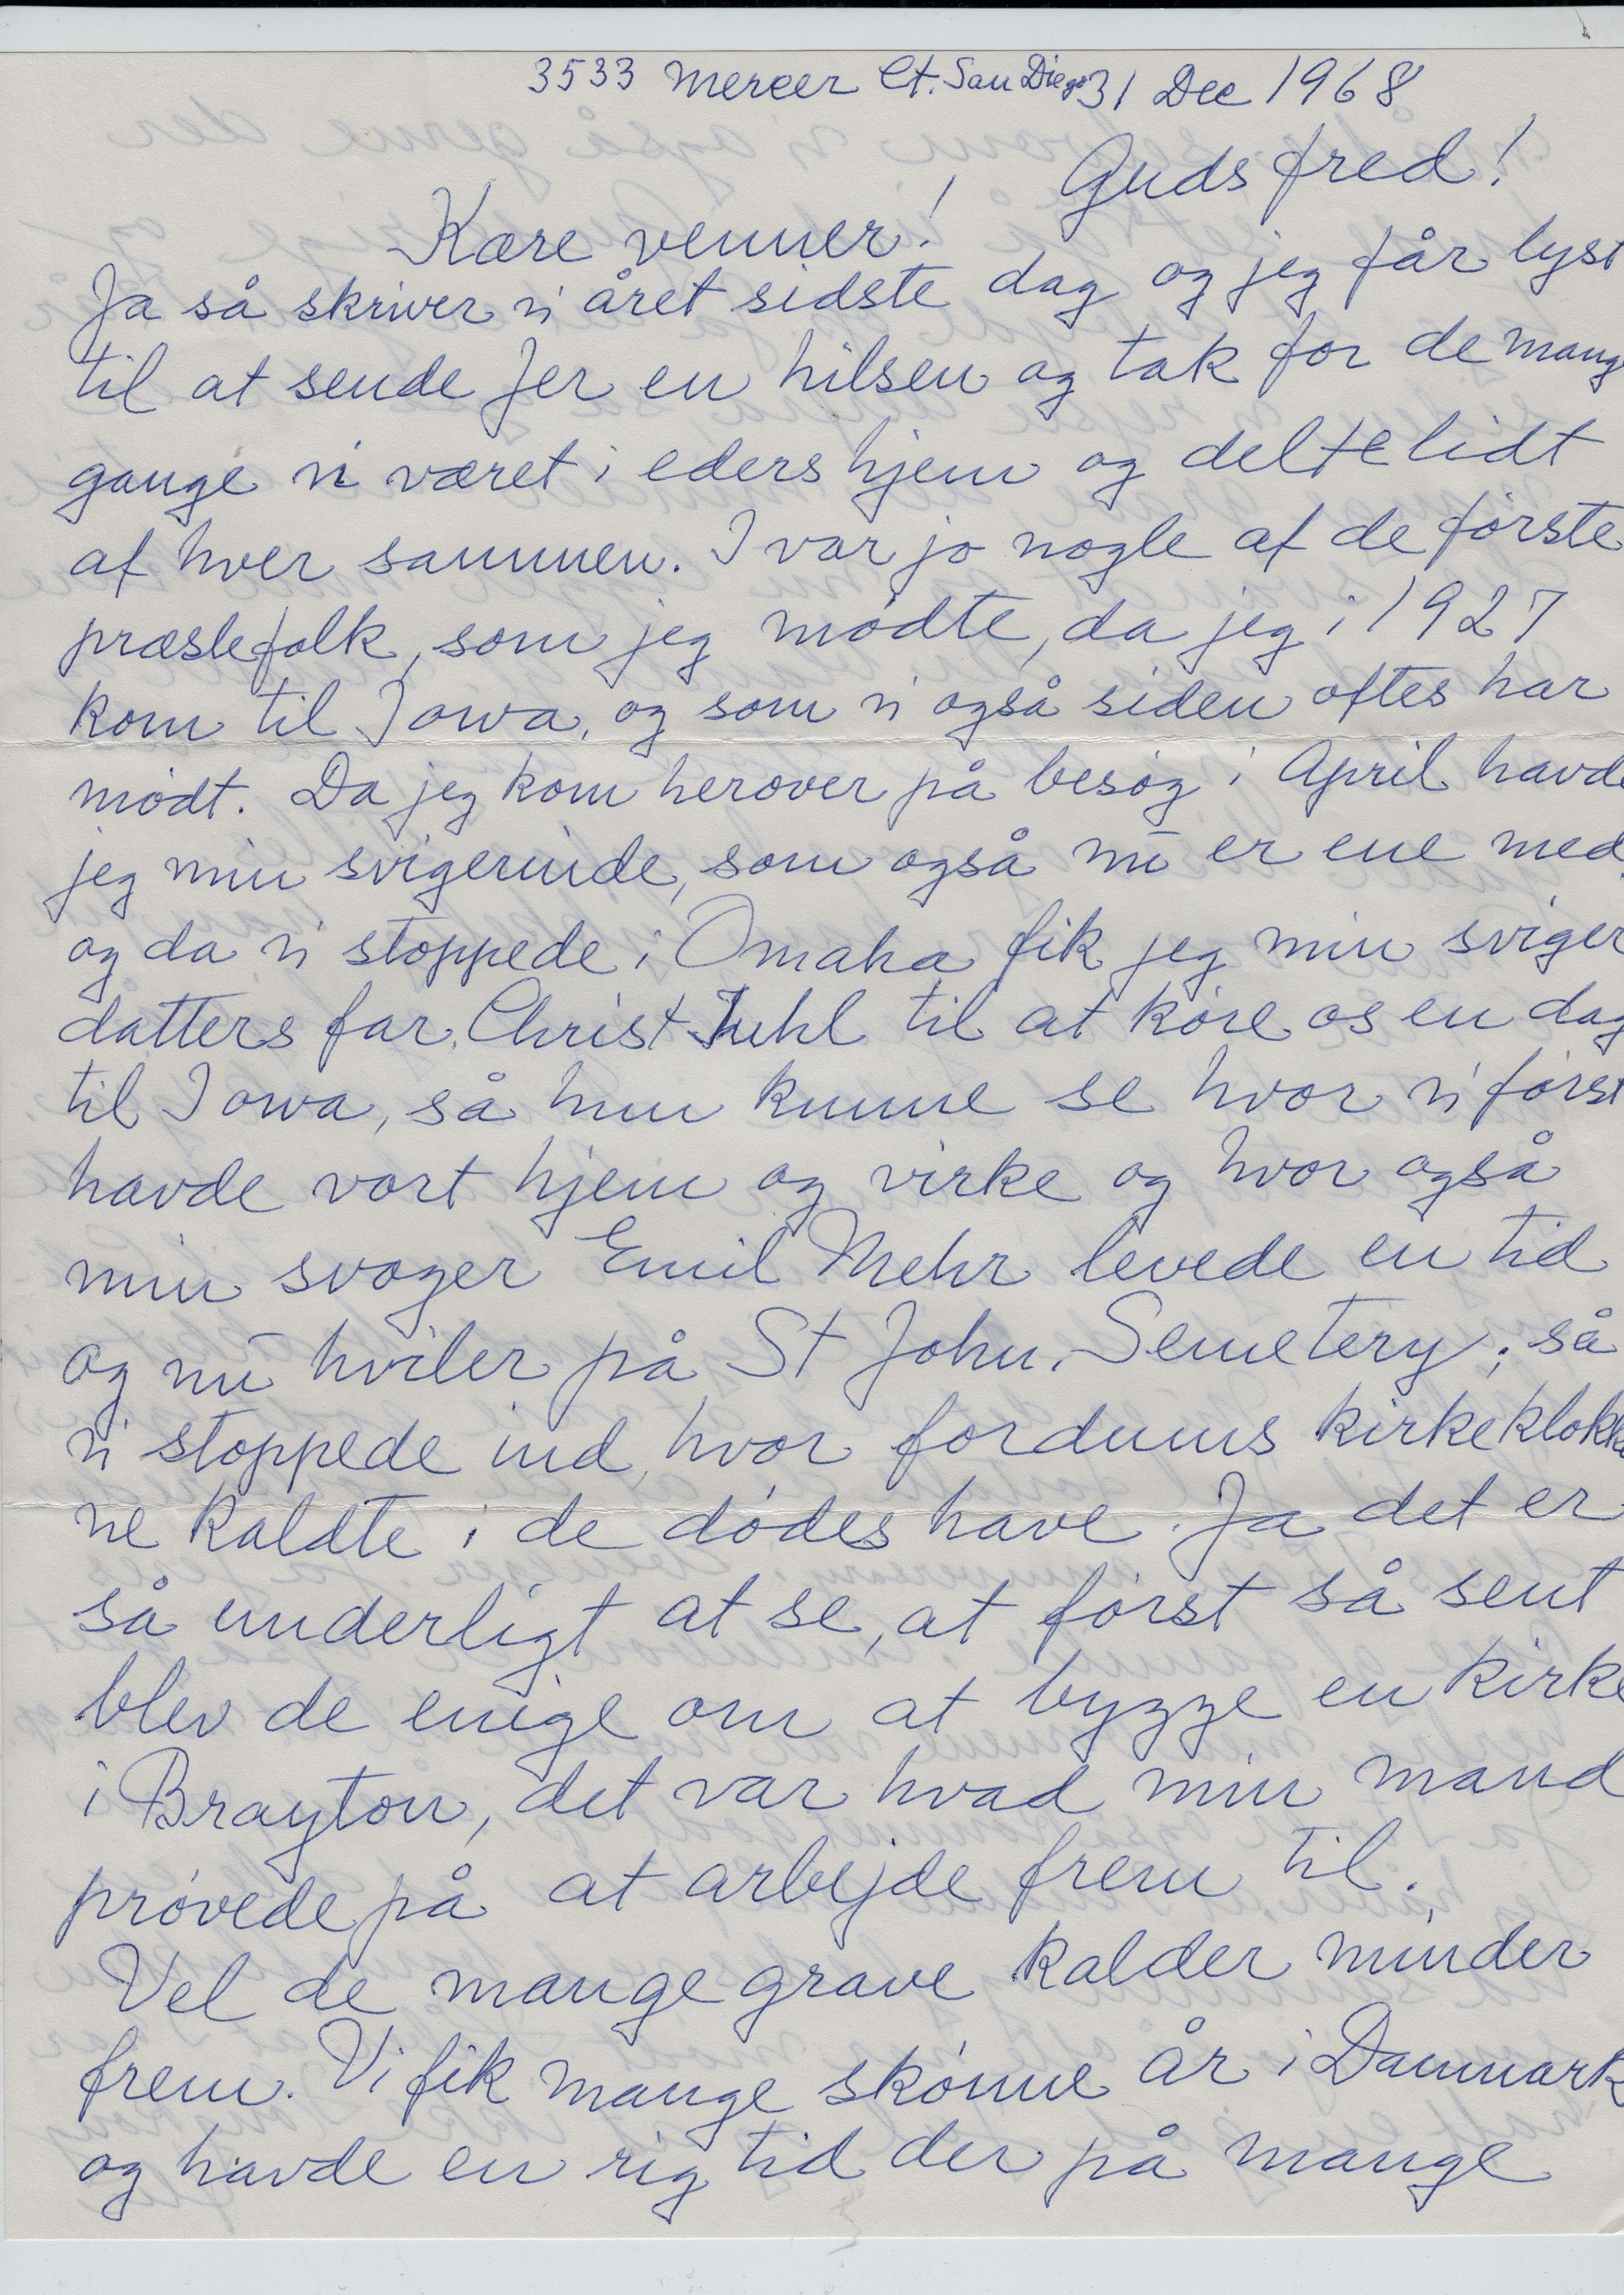 3533 Mercer Ct. San Diego 31 Dec 1968
Guds fred!
Kære venner!
Ja så skriver vi året sidste dag og jeg får lyst
til at sende Jer en hilsen og tak for de mang
gange vi været i eders hjem og delte lidt
af hver sammen. I var jo nogle af de første
præstefolk, som jeg mødte, da jeg i 1927
kom til Iowa, og som vi også siden oftes har
mødt. Da jeg kom herover på besøg i April havde
jeg min svigerinde, som også nu er ene med.
og da vi stoppede i Omaha fik jeg min sviger
datters far, Christ Juhl til at køre os en dag
til Iowa, så hun kunne se hvor vi først
havde vort hjem og virke og hvor også
min svoger Emil Mehr levede en tid
og nu hviler på St John. Semetery; så
vi stoppede ind, hvor fordums kirkeklokke
ne kaldte i de dødes have. Ja det er
så underligt at se, at først så sent
blev de enige om at bygge en kirke
i Brayton, det var hvad min mand
prøvede på at arbejde frem til.
Vel de mange grave kalder minder
frem. Vi fik mange skønne år i Danmark
og havde en rig tid der på mange